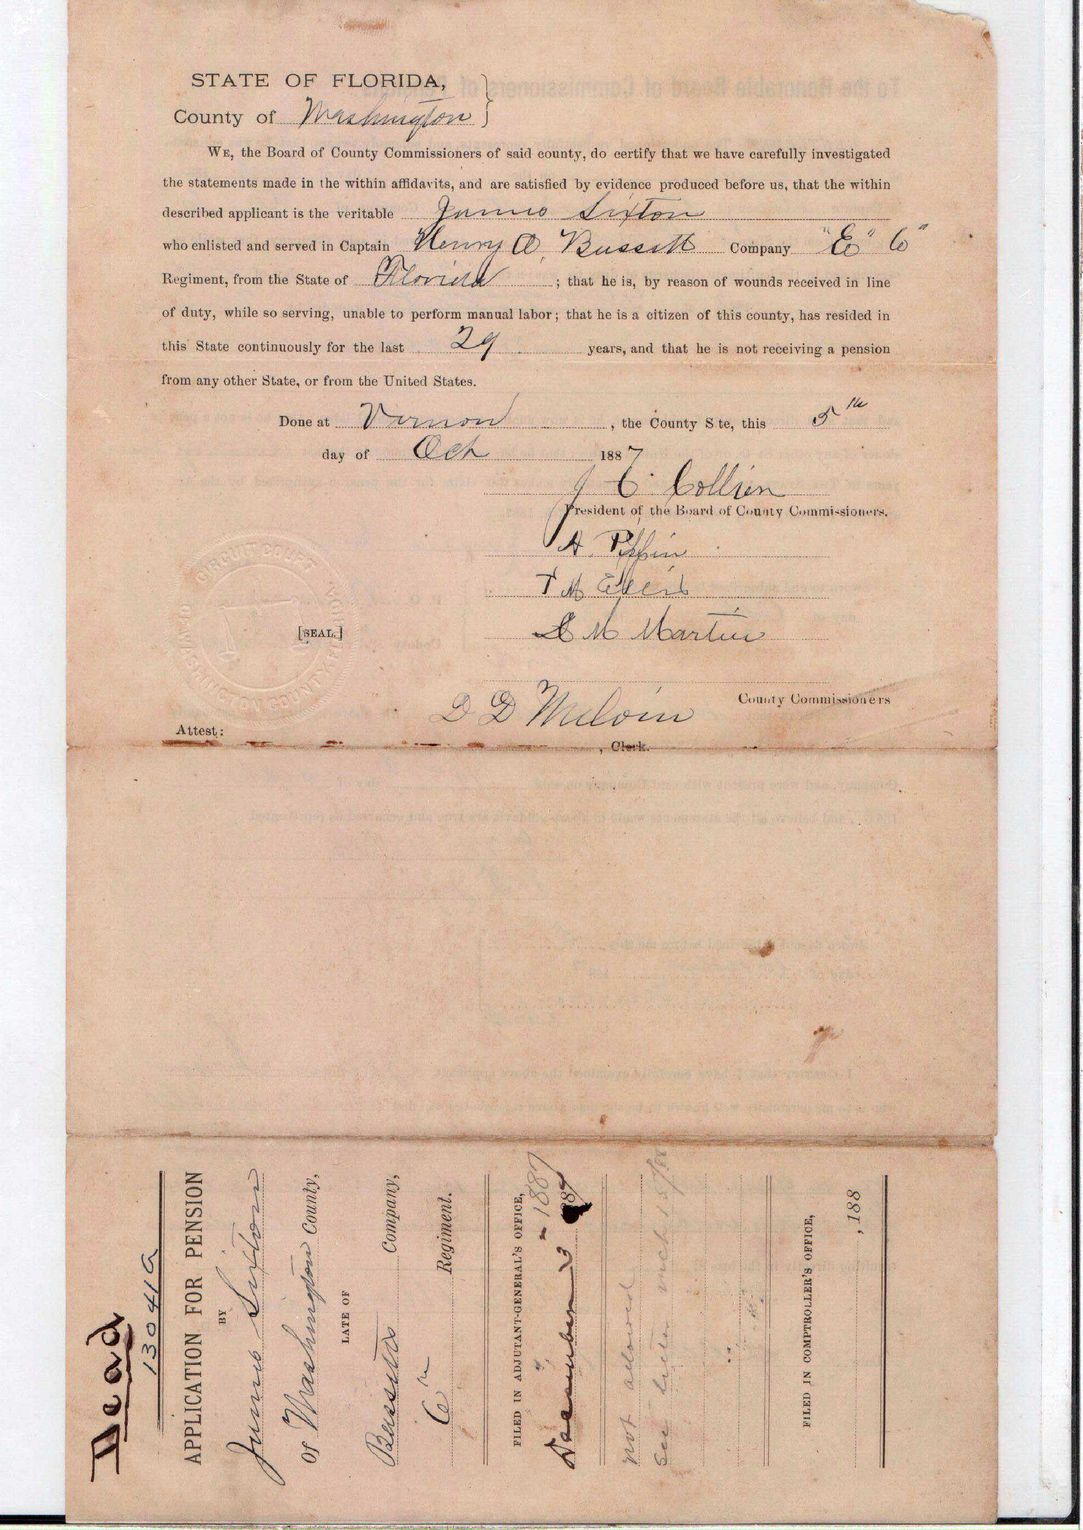 STATE OF FLORIDA,
County of Washington
WE, the Board of County Commissioners of said county, do certify that we have carefully investigated
the statements made in the within affidavits, and are satisfied by evidence produced before us, that the within
described applicant is the veritable James Sixton
who enlisted and served in Captain Henry O. Bassett Company "E" 6"
Regiment, from the State of Florida ; that he is, by reason of wounds received in line
of duty, while so serving, unable to perform manual labor; that he is a citizen of this county, has resided in
this State continuously for the last 29 years, and that he is not receiving a pension
from any other State, or from the United States.
Done at Vernon , the County Site, this 5th
day of Oct 1887
J C Collier
President of the Board of County Commissioners.
A. Pippin
T M
S M Martin
[SEAL]
CIRCUIT COURT WASHINGTON COUNTY
County Commissioners
D D Melvin
Attest:
, Clerk.
Dead
13041a
APPLICATION FOR PENSION
BY
James Sixton
Of Washington County,
LATE OF
Bassetts Company,
6th Regiment.
FILED IN ADJUTANT-GENERAL'S OFFICE,
December 3 - 1887
not allowed
See letter mch 15/88
FILED IN COMPTROLLER'S OFFICE,
, 188